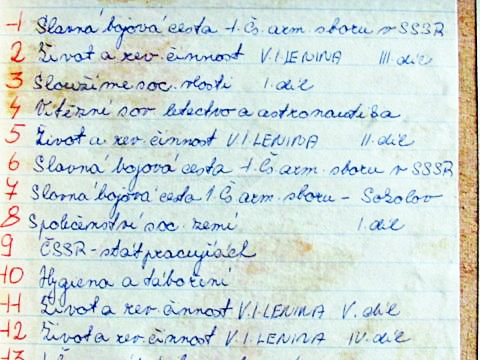 1 Slavná bojová cesta 1. Čs. arm. sboru v SSSR
2 Život a rev. činnost V.I. LENINA III. díl
3 Sloužíme soc. vlasti I. díl
4 Vítězní sov. letectvo a astronautika
5 Život a rev. činnost V.I. LENINA II. díl
6 Slavná bojová cesta 1. Čs. arm. sboru v SSSR
7 Slavná bojová cesta 1. Čs. arm. sboru - Sokolov
8 Společenství soc. zemí I. díl
9 ČSSR - stát pracujících
10 Hygiena a táboření
11 Život a rev. činnost V.I. LENINA V. díl
12 Život a rev. činnost V.I. LENINA IV. díl
13